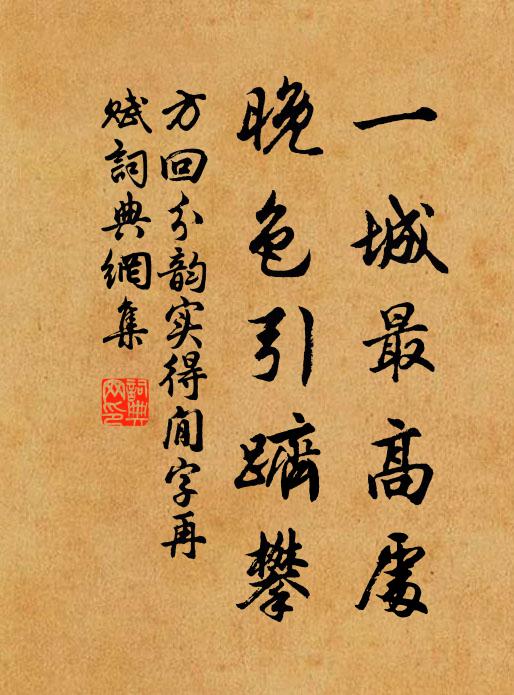 一城最高處
晚色引躋攀
方回分韵实得閒字再
赋詞典網集
詞典网印